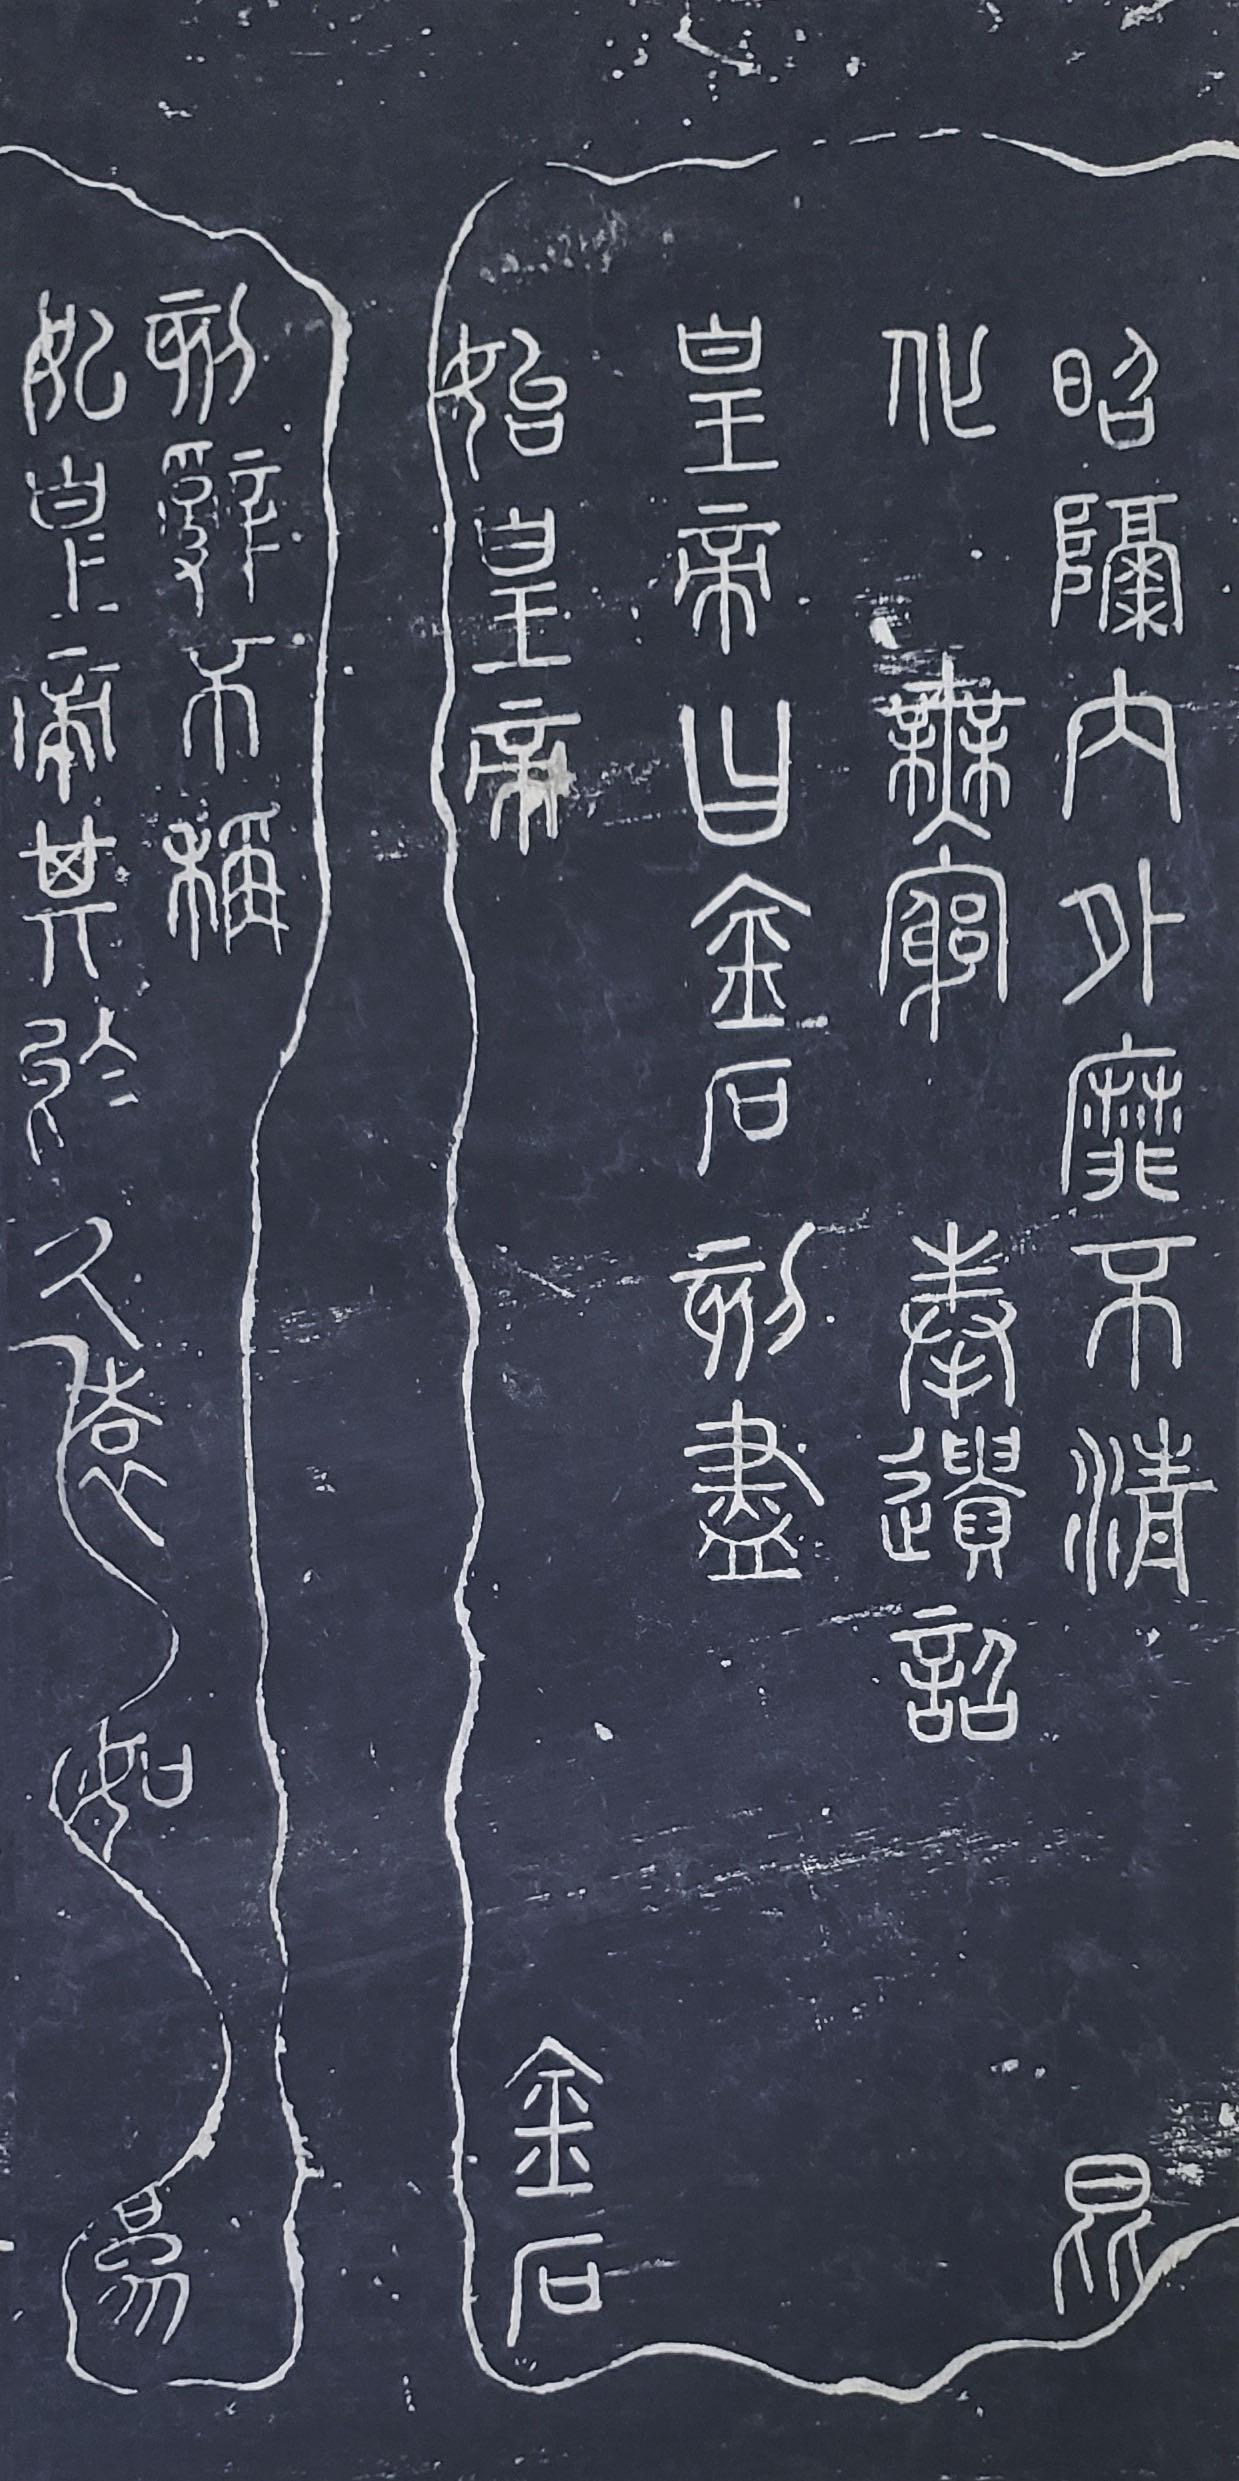 昭隔内外靡不清昆
化無窮奉遺詔
皇帝曰金石刻盡
始皇帝金石
刻辭不稱
始皇帝其於久遠如